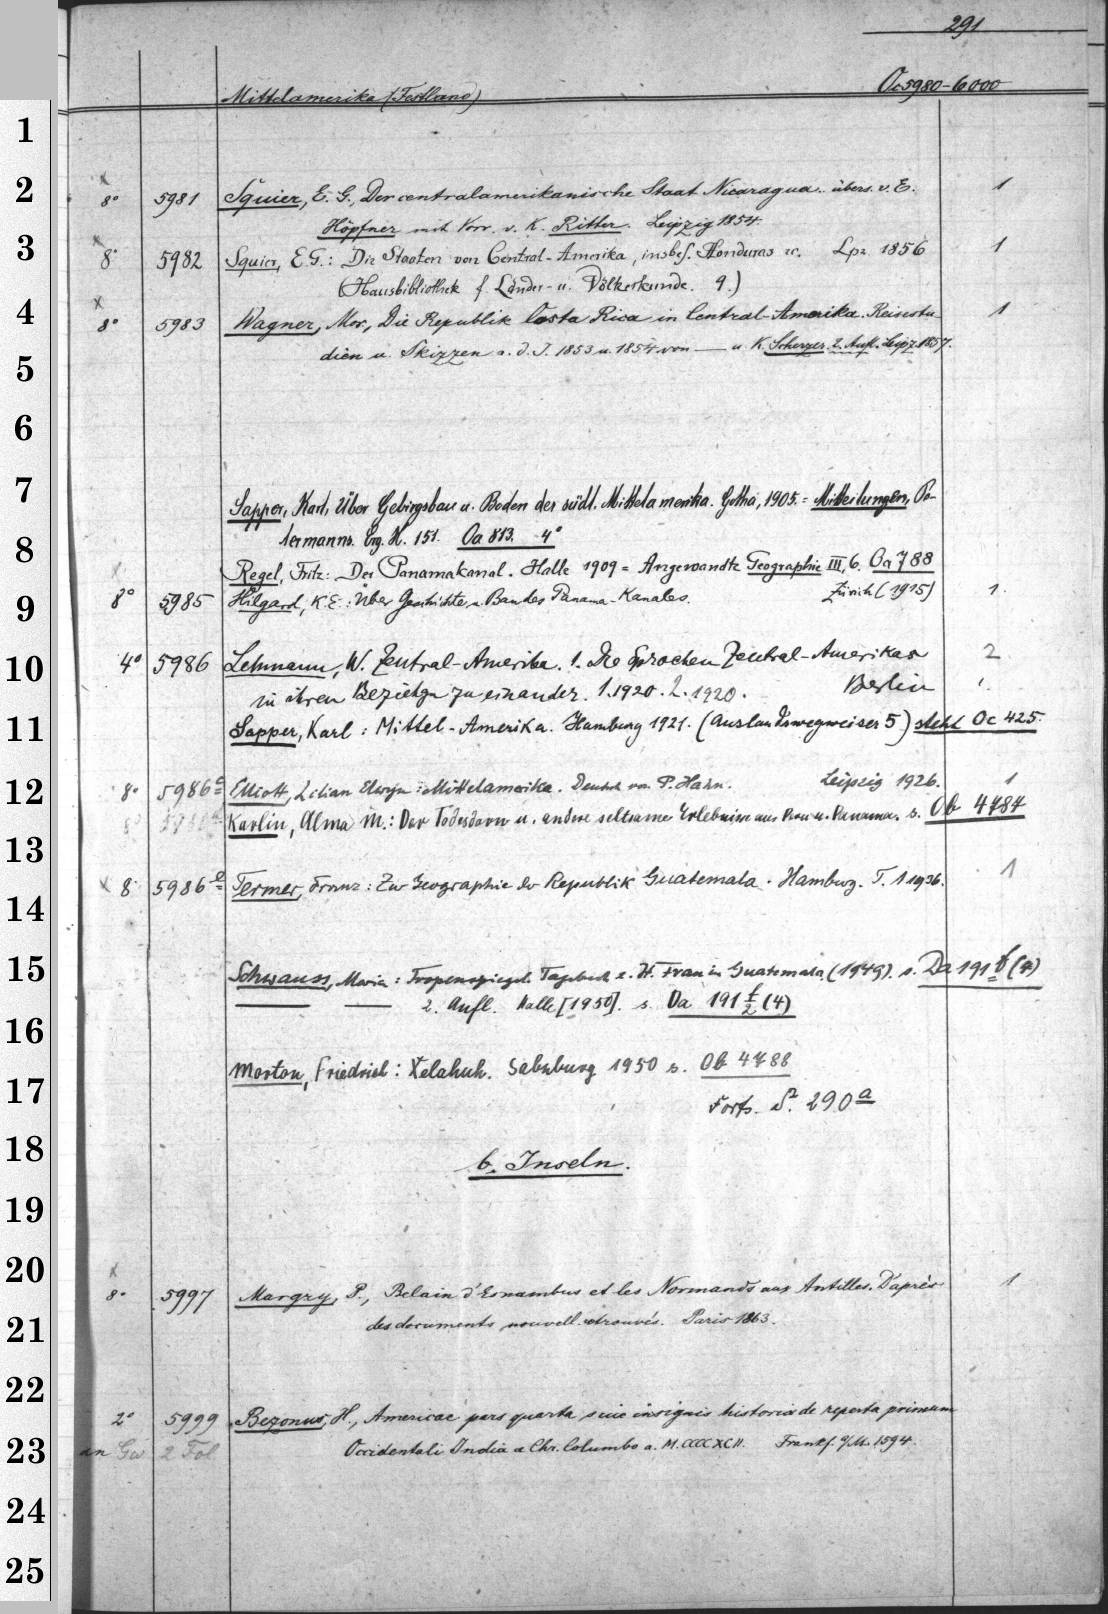 291
Mittelamerika (Festland) Oc 5980-6000
1
2
x
8° 5981 Squier, E. G., Der centralamerikanische Staat Nicaragua. übers. v. E. 1
Höpfner mit Vorr. v. K. Ritter. Leipzig 1854.
3
x
8° 5982 Squier, E. G.: Die Staaten von Central-Amerika, insbes. Honduras ec. Lpz. 1856 1
(Hausbibliothek f. Länder- u. Völkerkunde. 9.)
4
x
8° 5983 Wagner, Mor., Die Republik Costa Rica in Central-Amerika. Reisestu- 1
dien u. Skizzen a. d. J. 1853 u. 1854 von — u. K. Scherzer. 2. Aufl. Leipz. 1857.
5
6
7
Sapper, Karl, Über Gebirgsbau u. Boden des südl. Mittelamerika. Gotha, 1905. = Mitteilungen, Pe-
termanns. Erg. H. 151. Oa 813. 4°
8
x
Regel, Fritz: Der Panamakanal. Halle 1909 = Angewandte Geographie III, 6. Oa 788
9
8° 5985 Hilgard, K. E.: Über Geschichte u. Bau des Panama-Kanales. Zürich (1915) 1.
10
4° 5986 Lehmann, W. Zentral-Amerika. 1. Die Sprachen Zentral-Amerikas 2
in ihren Beziehgn zu einander. 1. 1920. 2. 1920. Berlin
11
Sapper, Karl: Mittel-Amerika. Hamburg 1921. (Auslandswegweiser 5) steht Oc 425.
12
8° 5986 a Elliott, Lilian Elwyn: Mittelamerika. Deutsch von P. Hahn. Leipzig 1926. 1
Karlin, Alma M.: Der Todesdorn u. andere seltsame Erlebnisse aus Peru u. Panama. s. Ob 4784
13
x 8° 5986 b Termer, Franz: Zur Geographie der Republik Guatemala. Hamburg. T. 1 1936. 1
14
15
Schwauss, Maria: Tropenspiegel. Tagebuch e. dt. Frau in Guatemala. (1949). s. Da 191 f (4)
— — 2. Aufl. Halle [1950]. s. Da 191 f/2 (4)
16
Morton, Friedrich: Xelahuh. Salzburg 1950 s. Ob 4788
17
Forts. S. 290 a
18
b. Inseln.
19
20
x
8° 5997 Margry, P., Belain d'Esnambuc et les Normands aux Antilles. D'après 1
21
des documents nouvell. retrouvés. Paris 1863.
22
2° 5999 Bezonus, H., Americae pars quarta sive insignis historia de reperta primum
23
an Gw 2 Fol Occidentali India a Chr. Columbo a. M.CCCCXCII. Frankf. a/M. 1594.
24
25